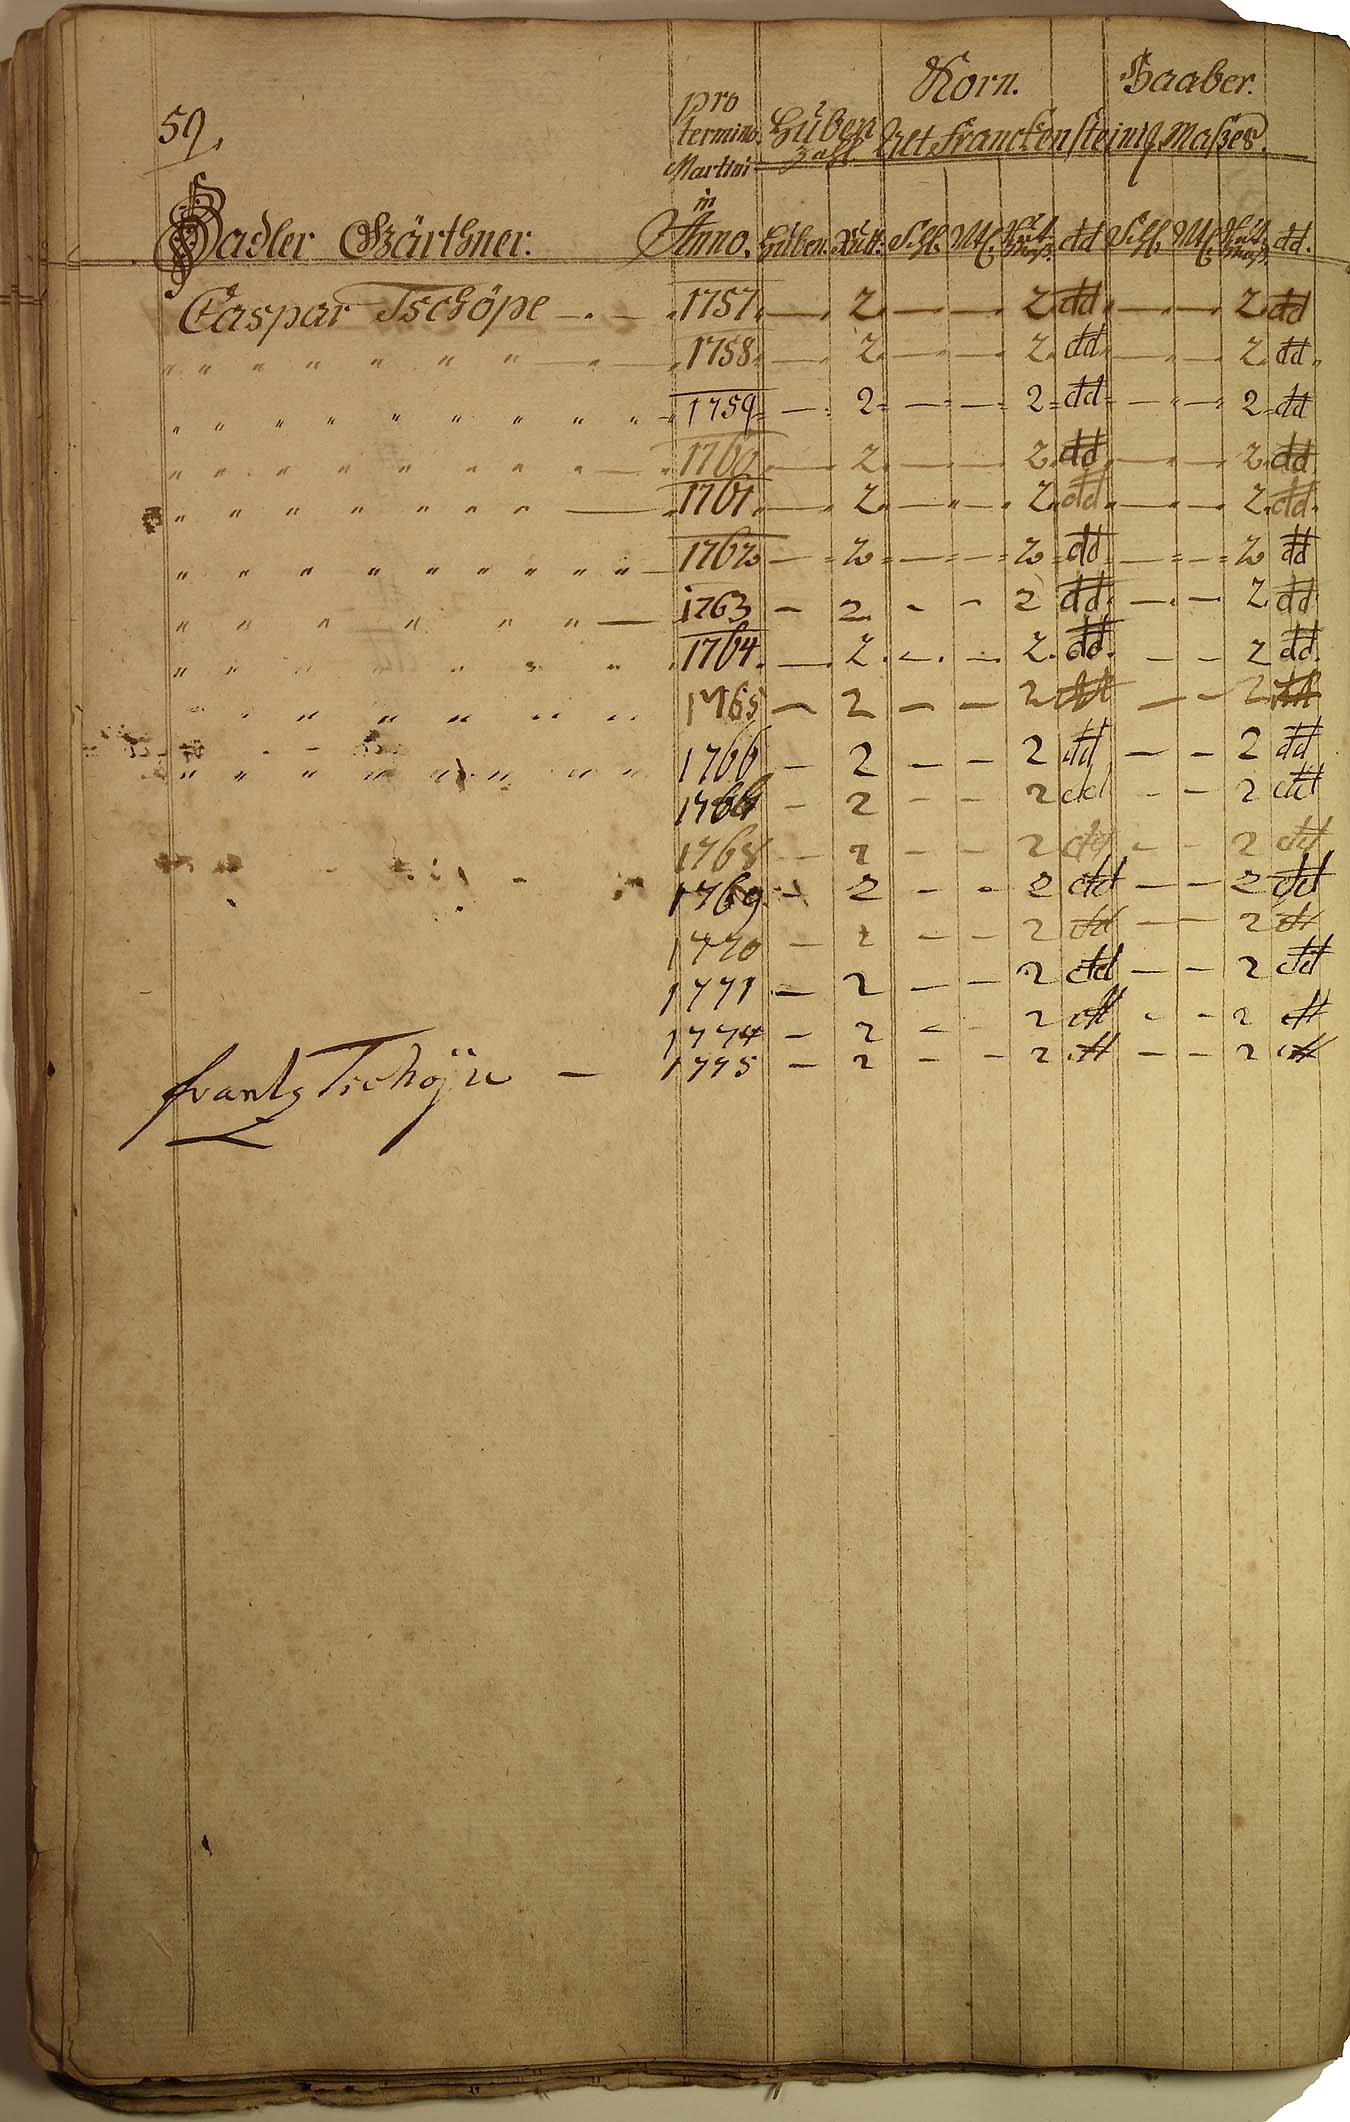 59.
Korn. Haaber.
pro
termino Huben
Martini Zahl. Alt Franckensteinig. Maßes.
in
Gärthner. Anno. Huben. Rutt. Schl. Mtz. dd Schl. Mtz. dd.
Caspar Tschöpe — . — 1757. — 2. — — 2. dd — — 2. dd
" " " " " " " — " — 1758. — 2. — — 2. dd. — — 2. dd.
" " " " " " " " " 1759 — 2 — — 2 dd — — 2 dd
" " " " " " " " — 1760. — 2. — — 2. dd — — 2. dd
" " " " " " " " — 1761. — 2. — — 2. dd — — 2. dd.
" " " " " " " " " " — 1762 — 2 — — 2 dd — — 2 dd
" " " " " " — 1763 — 2. — — 2 dd — — 2. dd
" " " " " " " 1764. — 2. — — 2. dd. — — 2 dd.
" " " " " " " 1765 — 2 — — 2 dd — — 2 dd
" " " " " " " " 1766 — 2 — — 2 dd — — 2 dd
— 2 — — 2 dd — — 2 dd
1768 — 2 — — 2 dd — — 2 dd
1769 — 2 — — 2 dd — — 2 dd
1770 — 2 — — 2 dd — — 2 dd
1771 — 2 — — 2 dd — — 2 dd
1774 — 2 — — 2 dd — — 2 dd
frantz Tschöpe — 1775 — 2 — — 2 dd — — 2 dd